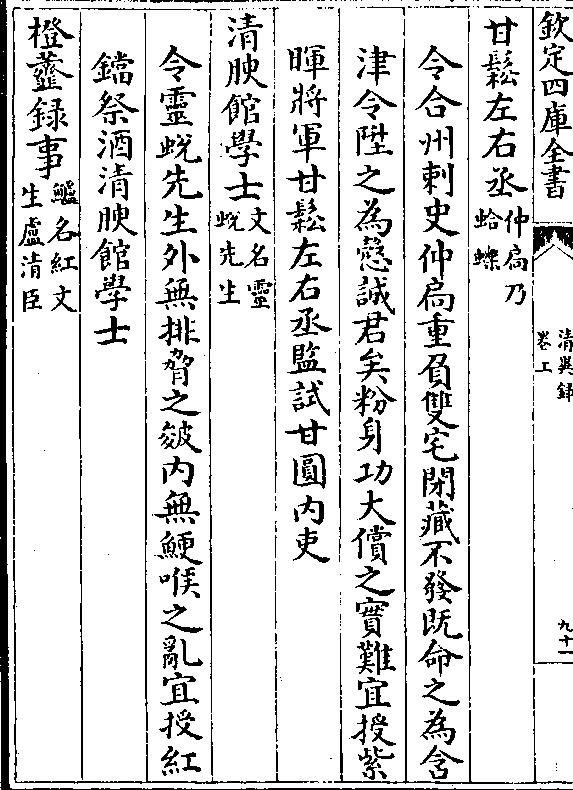 欽定四庫全書
清異録
卷上
九十一
甘鬆左右丞仲扄乃
蛤蜊
令合州刺史仲扄重負雙宅閉藏不發既命之為含
津令陞之為慤誠君矣粉身功大償之實難宜授紫
暉將軍甘鬆左右丞監試甘圓内史
清腴館學士文名靈
蛻先生
令靈蛻先生外無排脅之皴内無鯁喉之亂宜授紅
鐺祭酒清腴館學士
橙虀録事鱸名紅文
生盧清臣